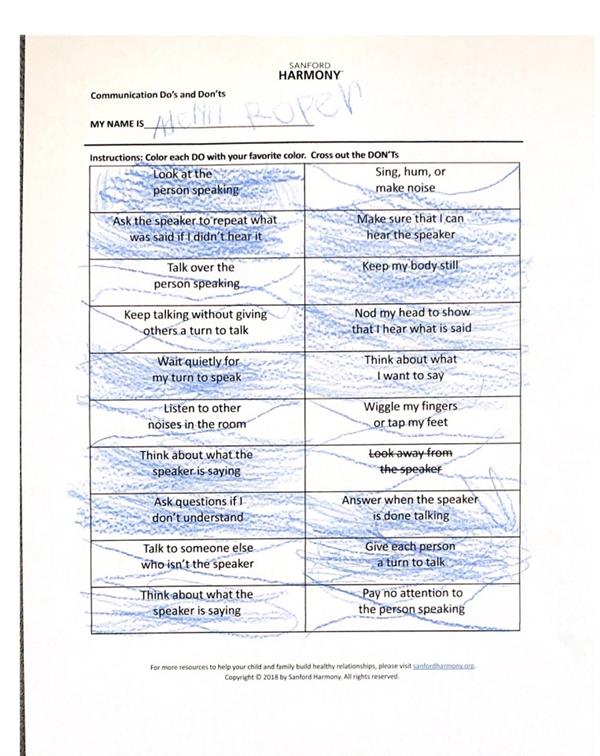 SANFORD
HARMONY
Communication Do's and Don'ts
MY NAME IS
Instructions: Color each DO with your favorite color. Cross out the DON'Ts
Look at the
person speaking
Sing, hum, or
make noise
Ask the speaker to repeat what
was said if I didn't hear it
Make sure that I can
hear the speaker
Talk over the
person speaking
Keep my body still
Keep talking without giving
others a turn to talk
Nod my head to show
that I hear what is said
Wait quietly for
my turn to speak
Think about what
I want to say
Listen to other
noises in the room
Wiggle my fingers
or tap my feet
Think about what the
speaker is saying
Look away from
the speaker
Ask questions if I
don't understand
Answer when the speaker
is done talking
Talk to someone else
who isn't the speaker
Give each person
a turn to talk
Think about what the
speaker is saying
Pay no attention to
the person speaking
For more resources to help your child and family build healthy relationships, please visit sanfordharmony.org.
Copyright © 2018 by Sanford Harmony. All rights reserved.